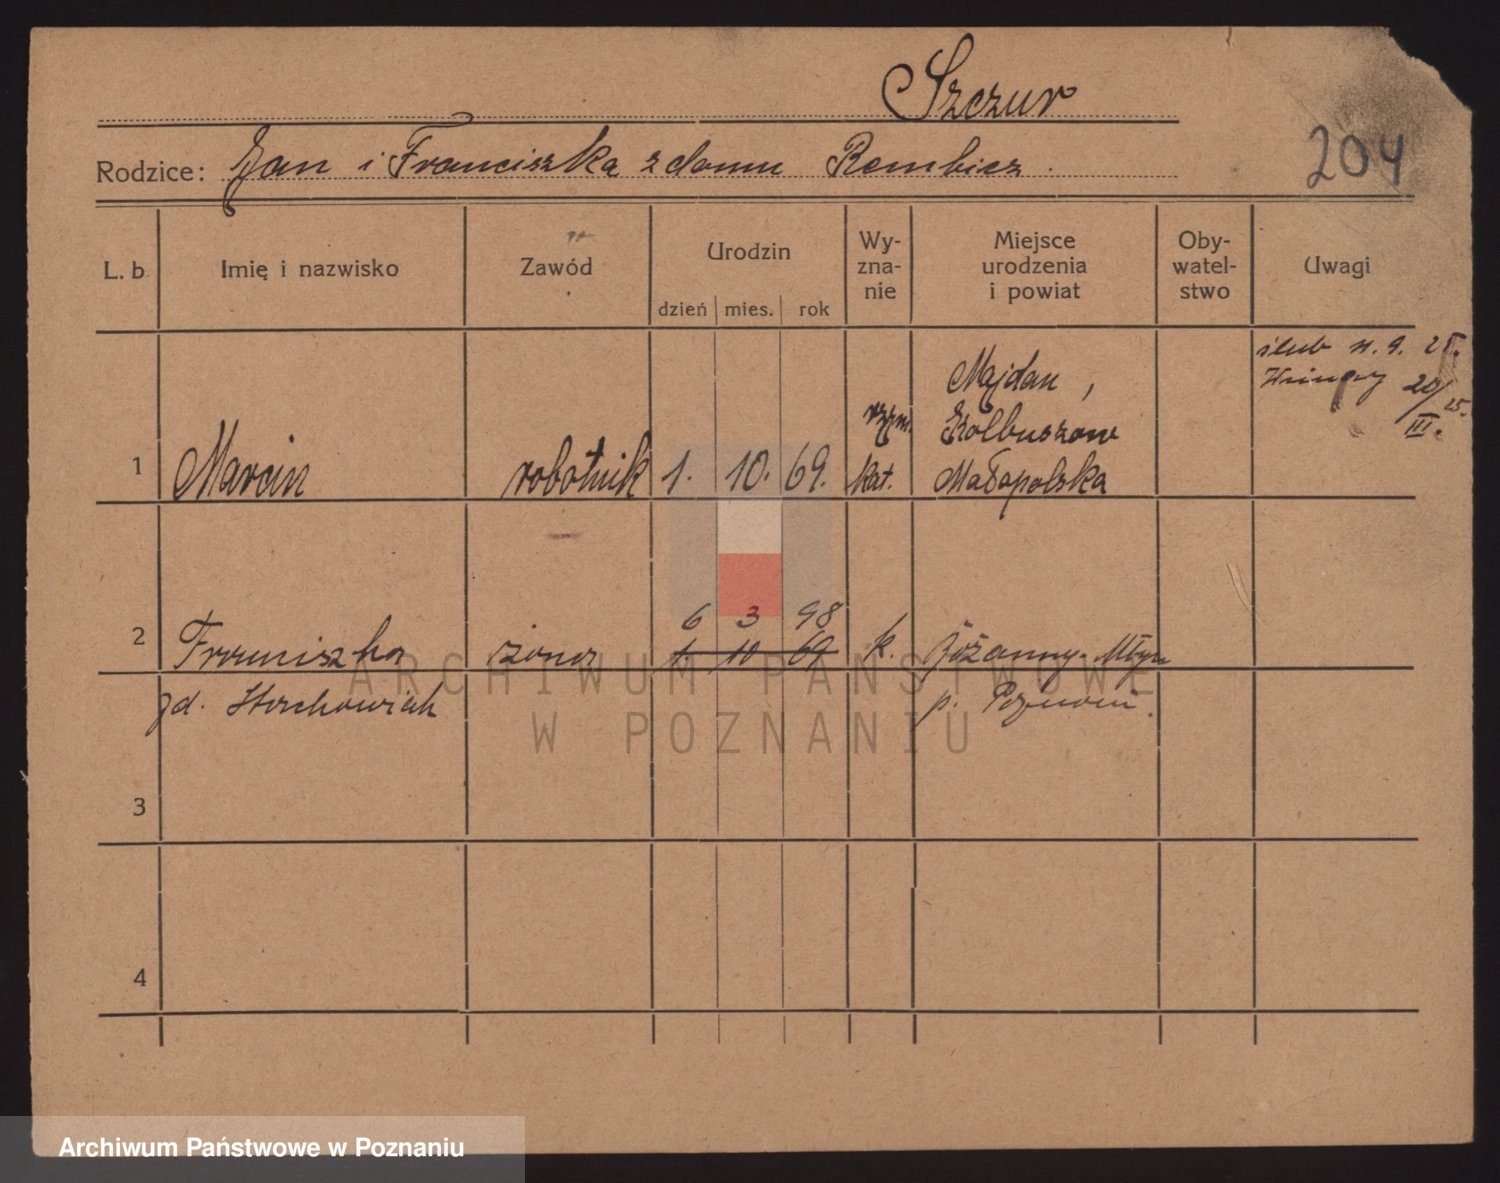 Szczur
204
Rodzice: Jan i Franciszka z domu Rembisz.
L. b. Imię i nazwisko Zawód Urodzin dzień mies. rok Wy-zna-nie Miejsce urodzenia i powiat Oby-watel-stwo Uwagi
ślub 11. 9. 25.
20/III. 25.
1 Marcin robotnik 1. 10. 69. rzym. kat. Majdan, Kolbuszow Małopolska
6 3 98
2 Franciszka żona 1. 10 69 k. Różanny-Młyn
zd. Stachowiak p. Poznań.
3
4
ARCHIWUM PAŃSTWOWE
W POZNANIU
Archiwum Państwowe w Poznaniu